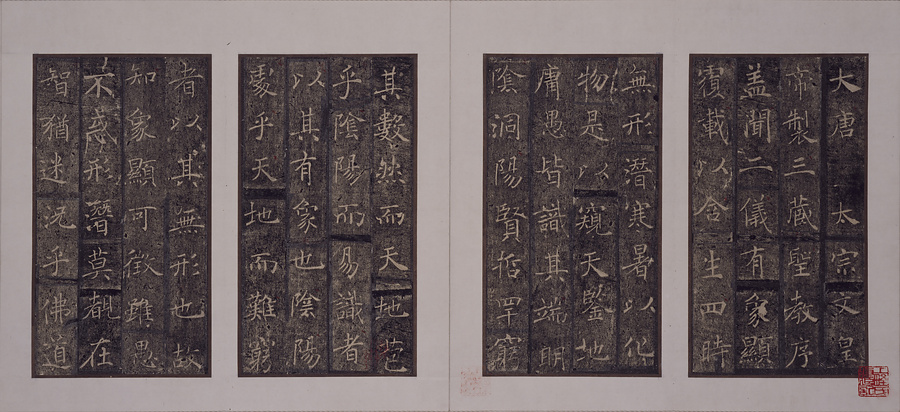 大唐太宗文皇
帝製三藏聖教序
盖聞二儀有象顯
覆載以含生四時
無形潛寒暑以化
物是以窺天鑒地
庸愚皆識其端明
陰洞陽賢哲罕窮
其數然而天地苞
乎陰陽而易識者
以其有象也陰陽
處乎天地而難窮
者以其無形也故
知象顯可徵雖愚
不惑形潛莫覩在
智猶迷況乎佛道